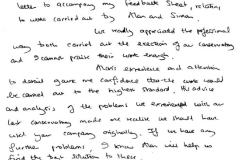 letter to accompany my feedback sheet, relating
to work carried out by Marn and Simon.
We really appreciated the professional
way both carried out the erection of our conservatory
and I cannot praise their work enough.
experience and attention
to detail gave me confidence that the work would
be carried out to the highest standard. His advice
and analysis of the problems we experienced with our
last conservatory made me realise we should have
used your company originally. If we have any
further problems, I know will help us
find the best solution to these.